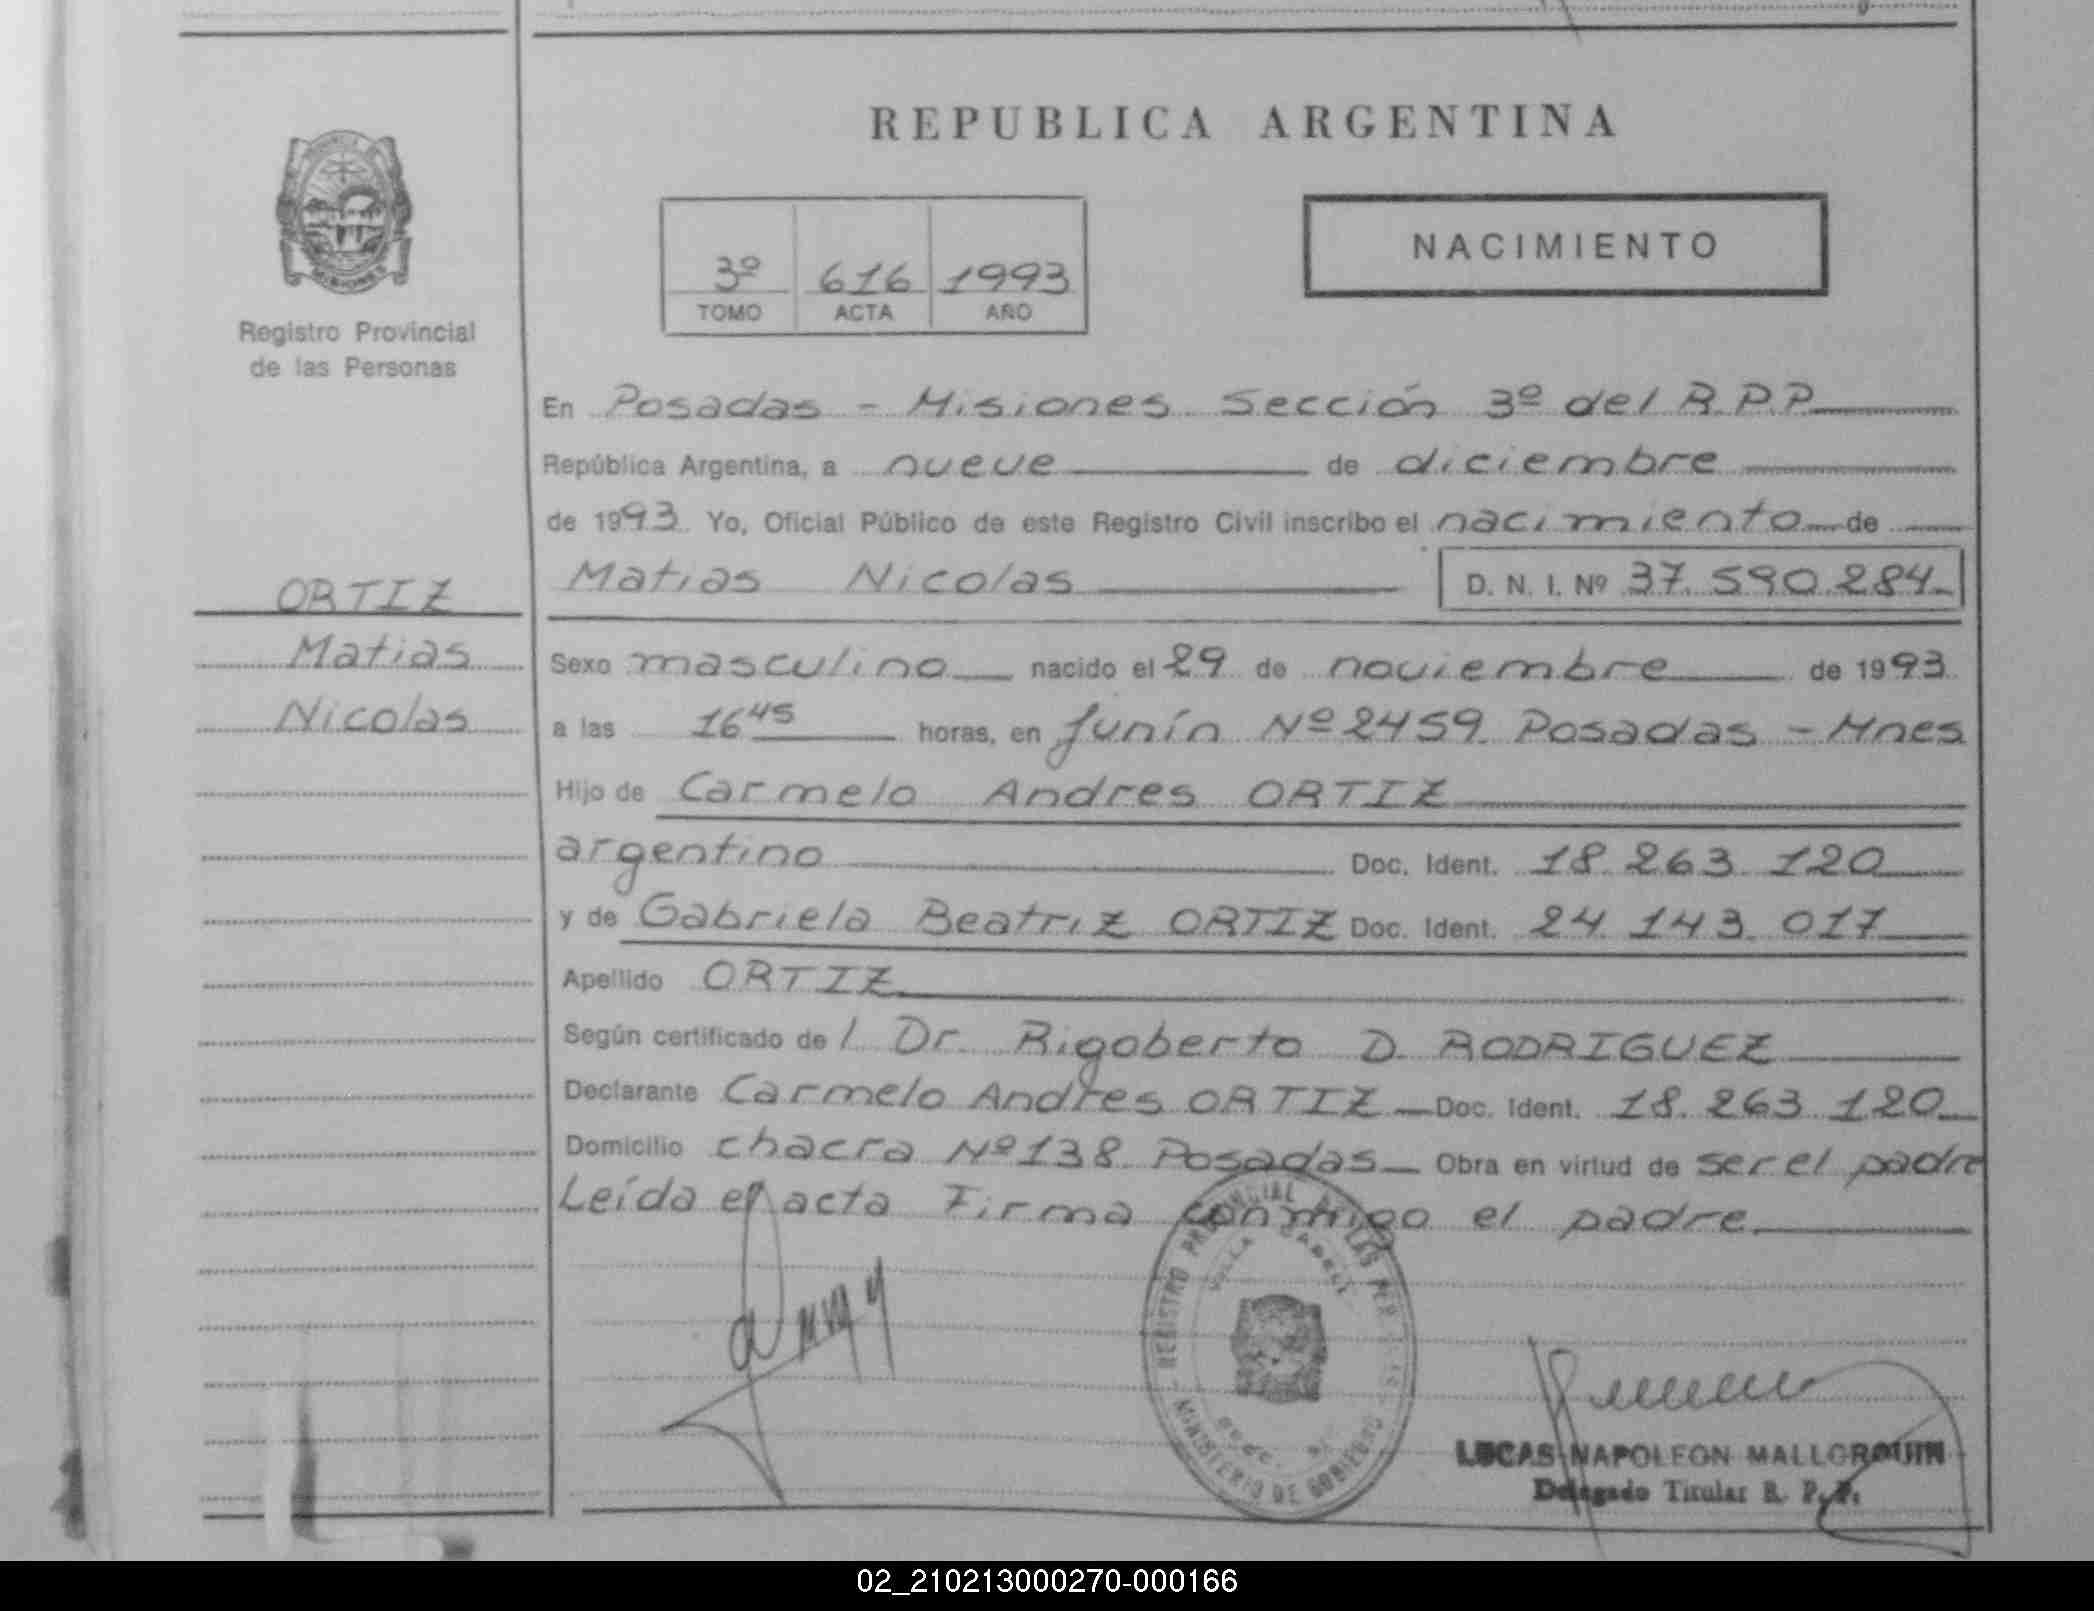 REPUBLICA ARGENTINA
MISIONES
Registro Provincial
de las Personas
3º 616 1993
TOMO ACTA AÑO
NACIMIENTO
ORTIZ
Matias
Nicolas
En Posadas - Misiones Sección 3º del R.P.P.
República Argentina, a nueve de diciembre
de 1993 Yo, Oficial Público de este Registro Civil inscribo el nacimiento de
Matias Nicolas D. N. I. Nº 37.590.284
Sexo masculino nacido el 29 de noviembre de 1993
a las 16 45 horas, en Junín Nº 2459. Posadas - Mnes
Hijo de Carmelo Andres ORTIZ
argentino Doc. Ident. 18.263.120
y de Gabriela Beatriz ORTIZ Doc. Ident. 24.143.017
Apellido ORTIZ
Según certificado de l Dr. Rigoberto D. RODRIGUEZ
Declarante Carmelo Andres ORTIZ Doc. Ident. 18.263.120
Domicilio chacra Nº 138 Posadas Obra en virtud de ser el padre
Leída el acta Firma conmigo el padre
REGISTRO PROVINCIAL DE LAS PER
VILLA CABELL
MINISTERIO DE GOBIERNO
LUCAS NAPOLEON MALLORQUIN
Delegado Titular R. P. P.
02_210213000270-000166